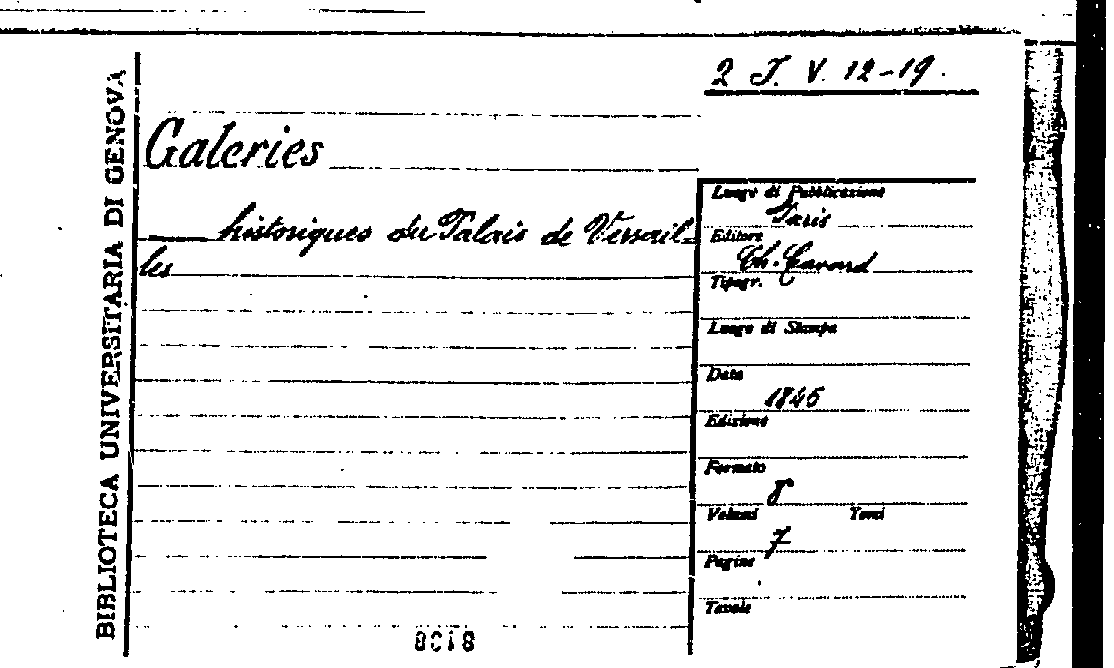 BIBLIOTECA UNIVERSITARIA DI GENOVA
2 T. V. 12-19.
Galeries
historiques du Palais de Versail-
les
Luogo di Pubblicazione
Paris
Editore
Ch. Gavard
Tipogr.
Luogo di Stampa
Data
1846
Edizione
Formato
8
Volumi Tomi
7
Pagine
Tavole